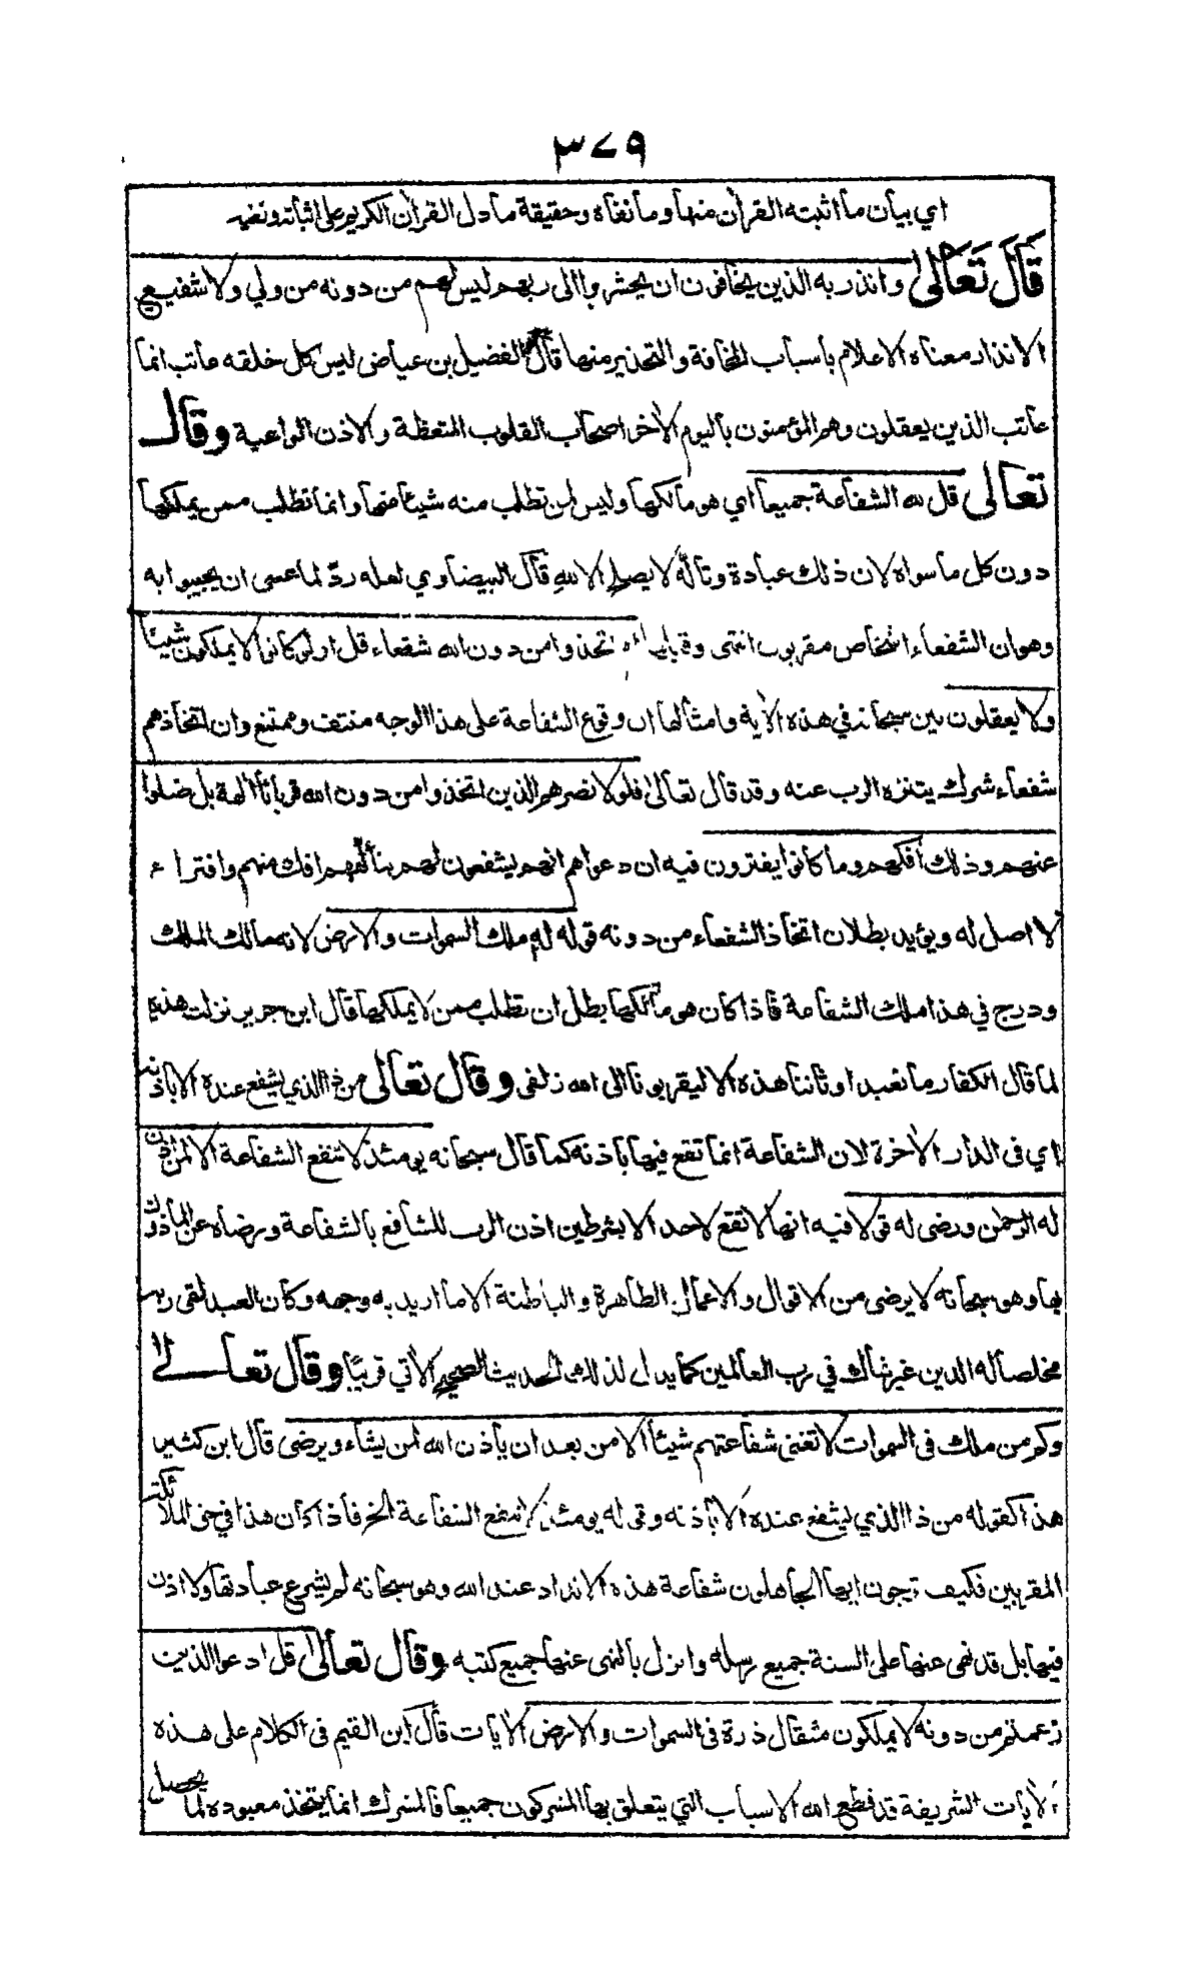 ٣٧٩
اي بيان ما اثبته القران منها وما نفاه وحقيقة ما دل القران الكريم على اثباته ونفيه
قال تعالى وانذر به الذين يخافون ان يحشروا الى ربهم ليس لهم من دونه من ولي ولا شفيع
الانذار معناه الاعلام باسباب المخافة والتحذير منها قال الفضيل بن عياض ليس كل خلقه عاتب انما
عاتب الذين يعقلون وهم المؤمنون باليوم الاخر اصحاب القلوب المتعظة والاذن الواعية وقال
تعالى قل لله الشفاعة جميعا اي هو مالكها وليس لمن تطلب منه شيئا منها وانما تطلب ممن يملكها
دون كل ما سواه لان ذلك عبادة وتأله لا يصلح الا لله قال البيضاوي لعله ردّ لما عسى ان يجيبوا به
وهو ان الشفعاء اشخاص مقربون انتهى وقبلها ام اتخذوا من دون الله شفعاء قل اولو كانوا لا يملكون شيئا
ولا يعقلون بين سبحانه في هذه الآية وامثالها ان وقوع الشفاعة على هذا الوجه منتف وممتنع وان اتخاذهم
شفعاء شرك يتنزه الرب عنه وقد قال تعالى فلولا نصرهم الذين اتخذوا من دون الله قربانا آلهة بل ضلوا
عنهم وذلك افكهم وما كانوا يفترون فيه ان دعواهم انهم يشفعون لهم بتألههم افك منهم وافتراء
لا اصل له ويؤيد بطلان اتخاذ الشفعاء من دونه قوله له ملك السموات والارض لانه مالك الملك
ودرج في هذا ملك الشفاعة فاذا كان هو مالكها بطل ان تطلب ممن لا يملكها قال ابن جرير نزلت هذه
لما قال الكفار ما نعبد اوثاننا هذه الا ليقربونا الى الله زلفى وقال تعالى من ذا الذي يشفع عنده الا باذنه
اي في الدار الآخرة لان الشفاعة انما تقع فيها باذنه كما قال سبحانه يومئذ لا تنفع الشفاعة الا لمن اذن
له الرحمن ورضى له قولا فيه انها لا تقع لاحد الا بشرطين اذن الرب للشافع بالشفاعة ورضاه عن المأذون
بها وهو سبحانه لا يرضى من الاقوال والاعمال الظاهرة والباطنة الا ما اريد به وجهه وكان العبد لقى ربه
مخلصا له الدين غير شاك في رب العالمين كما يدل لذلك الحديث الصحيح الآتي قريبًا وقال تعالى
وكم من ملك في السموات لا تغنى شفاعتهم شيئا الا من بعد ان يأذن الله لمن يشاء ويرضى قال ابن كثير
هذا كقوله من ذا الذي يشفع عنده الا باذنه وقوله يومئذ لا تنفع الشفاعة الخ فاذا كان هذا في حق الملائكة
المقربين فكيف ترجون ايها الجاهلون شفاعة هذه الانداد عند الله وهو سبحانه لم يشرع عبادتها ولا اذن
فيها بل قد نهى عنها على السنة جميع رسله وانزل بالنهى عنها جميع كتبه وقال تعالى قل ادعوا الذين
زعمتم من دونه لا يملكون مثقال ذرة في السموات والارض الآيات قال ابن القيم في الكلام على هذه
الآيات الشريفة قد قطع الله الاسباب التي يتعلق بها المشركون جميعا فالمشرك انما يتخذ معبوده لما يحصل